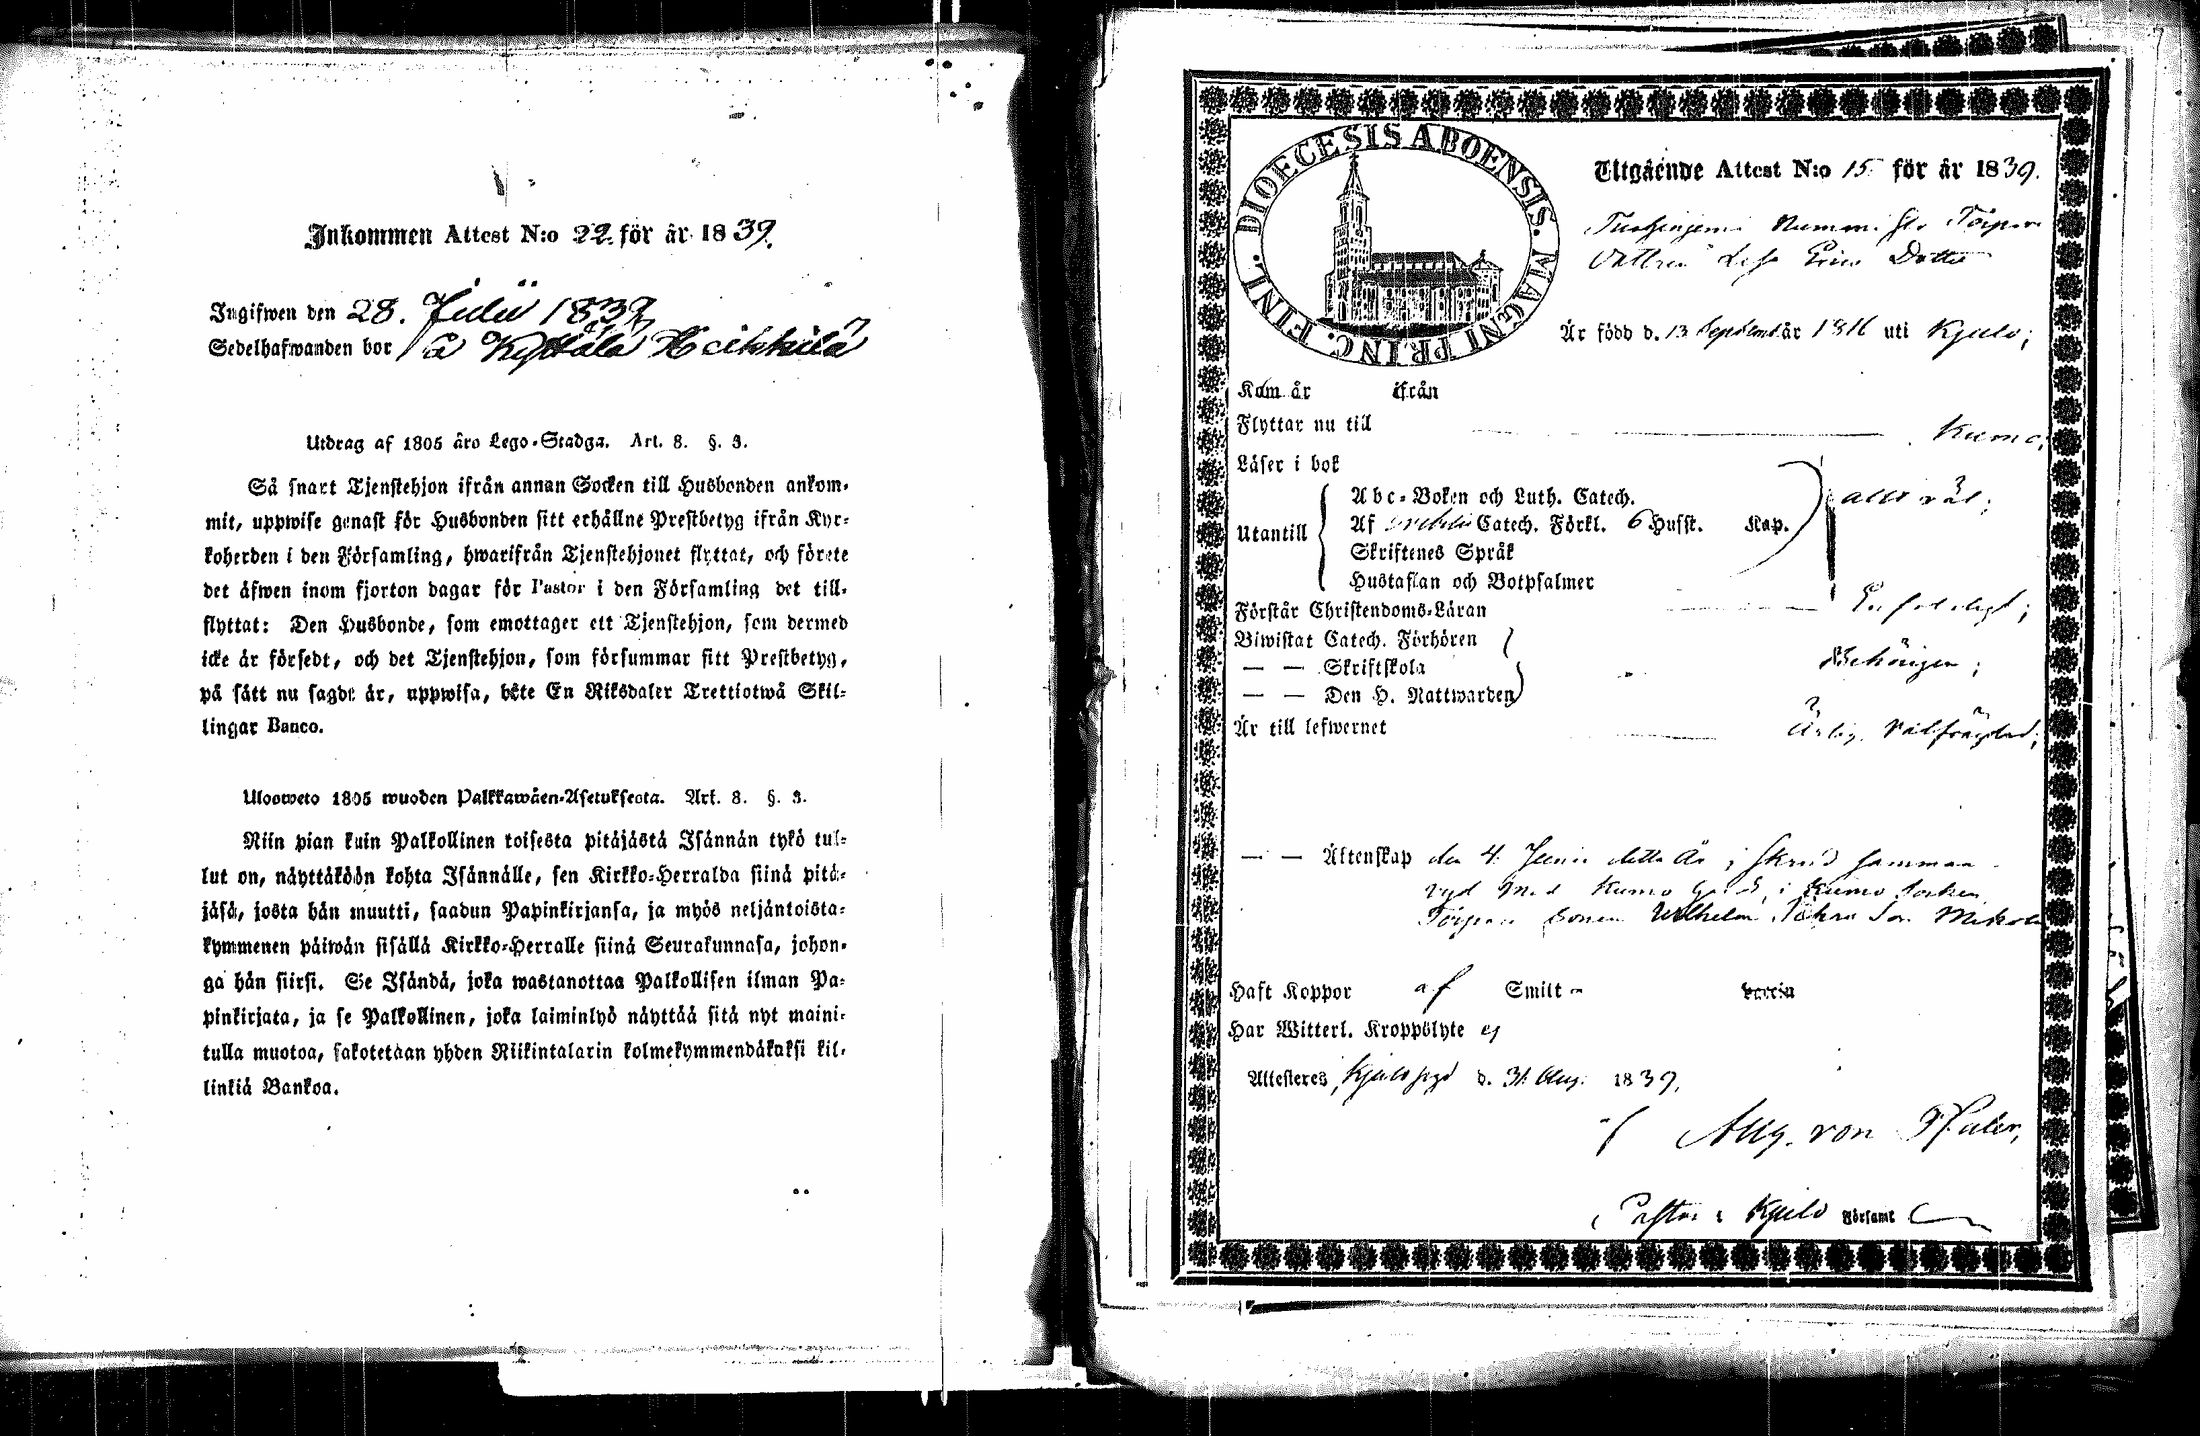 Inkommen Attest N:o 22. för år 1839.
Ingifwen den 28. Julii 1839
Sedelhafwanden bor å Kyttälä Heikkilä
Utdrag af 1805 års Lego-Stadga. Art. 8. §. 3.
Så snart Tjenstehjon ifrån annan Socken till Husbonden ankom-
mit, uppwise genast för Husbonden sitt erhållne Prestbetyg ifrån Kyr-
koherden i den Församling, hwarifrån Tjenstehjonet flyttat, och förete
det äfwen inom fjorton dagar för Pastor i den Församling det till-
flyttat: Den Husbonde, som emottager ett Tjenstehjon, som dermed
icke är försedt, och det Tjenstehjon, som försummar sitt Prestbetyg,
på sätt nu sagdt är, uppwisa, böte En Riksdaler Trettiotwå Skil-
lingar Banco.
Ulosweto 1805 wuoden Palkkawäen-Asetuksesta. Art. 8. §. 3.
Niin pian kuin Palkollinen toisesta pitäjästä Isännän tykö tul-
lut on, näyttäköön kohta Isännälle, sen Kirkko-Herralda siinä pitä-
jäsä, josta hän muutti, saadun Papinkirjansa, ja myös neljäntoista-
kymmenen päiwän sisällä Kirkko-Herralle siinä Seurakunnasa, johon-
ga hän siirsi. Se Isändä, joka wastanottaa Palkollisen ilman Pa-
pinkirjata, ja se Palkollinen, joka laiminlyö näyttää sitä nyt maini-
tulla muotoa, sakotetaan yhden Riikintalarin kolmekymmendäkaksi kil-
linkiä Bankoa.
DIOECESIS ABOENSIS. MAGNI PRINC. FINL.
Utgående Attest N:o 15 för år 1839.
Eric Dotter
Är född d. 13 September år 1816 uti Kjulo;
Kom år ifrån
Flyttar nu till Kumo;
Läser i bok
Abc-Boken och Luth. Catech. allt väl;
Utantill Af Catech. Förkl. 6 Husst. Kap.
Skriftenes Språk
Hustaflan och Botpsalmer
Förstår Christendoms-Läran Enfaldigt;
Biwistat Catech. Förhören
— — Skriftskola Behörigen;
— — Den H. Nattwarden
Är till lefwernet Ärlig, välfrägdad;
— — Äktenskap den 4 Junii detta år
med Kumo i Kumo Socken
Sonen Wilhelm
Haft Koppor af Smitt
Har Witterl. Kroppslyte ej
Attesteres, Kjulo d. 31 Aug. 1839.
Aug. von Pfaler,
Pastor i Kjulo Församl